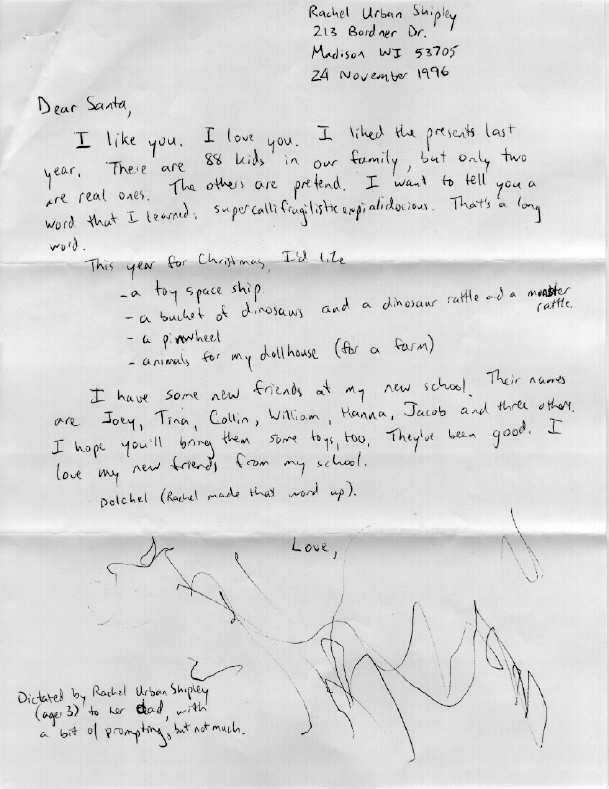 Rachel Urban Shipley
213 Bordner Dr.
Madison WI 53705
24 November 1996
Dear Santa,
I like you. I love you. I liked the presents last
year. There are 88 kids in our family, but only two
are real ones. The others are pretend. I want to tell you a
word that I learned: supercallifragilisticexpialidocious. That's a long
word.
This year for Christmas, I'd like
- a toy space ship
- a bucket of dinosaurs and a dinosaur rattle and a monster
rattle.
- a pinwheel
- animals for my dollhouse (for a farm)
I have some new friends at my new school. Their names
are Joey, Tina, Collin, William, Hanna, Jacob and three others.
I hope you'll bring them some toys, too. They've been good. I
love my new friends from my school.
Dolchel (Rachel made that word up).
Love,
Dictated by Rachel Urban Shipley
(age 3) to her dad, with
a bit of prompting, but not much.